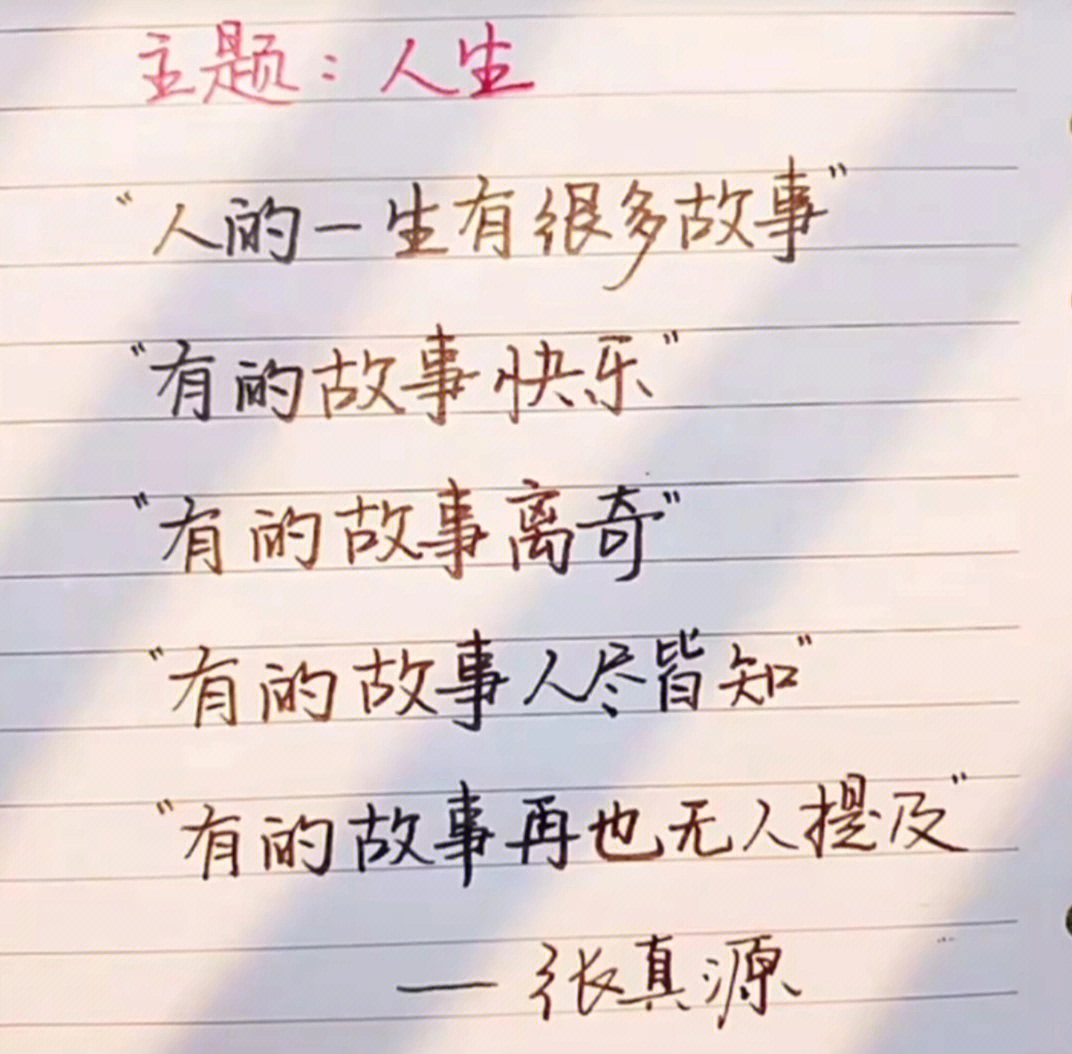 主题：人生
“人的一生有很多故事”
“有的故事快乐”
“有的故事离奇”
“有的故事人尽皆知”
“有的故事再也无人提及”
— 张真源